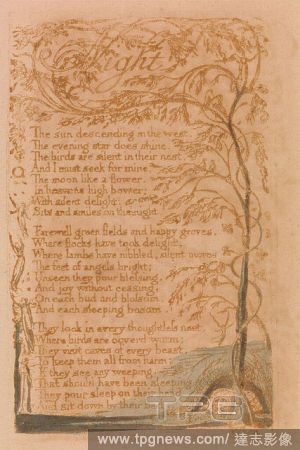 Night
The sun descending in the west.
The evening star does shine.
The birds are silent in their nest.
And I must seek for mine.
The moon like a flower.
In heavens high bower;
With silent delight,
Sits and smiles on the night
Farewell green fields and happy groves,
Where flocks have took delight,
Where lambs have nibbled, silent moves
The feet of angels bright;
Unseen they pour blessing,
And joy without ceasing,
On each bud and blossom,
And each sleeping bosom.
They look in every thoughtless nest
Where birds are coverd warm;
They visit caves of every beast,
To keep them all from harm:
If they see any weeping,
That should have been sleeping
They pour sleep on their head
And sit down by their bed
TPG
www.tpgnews.com / 達志影像